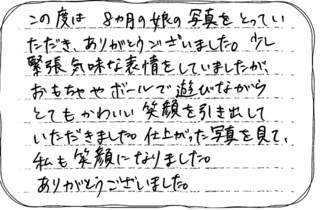 この度は 8カ月の娘の写真をとってい
ただき、ありがとうございました。少し
緊張気味な表情をしていましたが、
おもちゃやボールで遊びながら
とてもかわいい笑顔を引き出して
いただきました。仕上がった写真を見て、
私も笑顔になりました。
ありがとうございました。